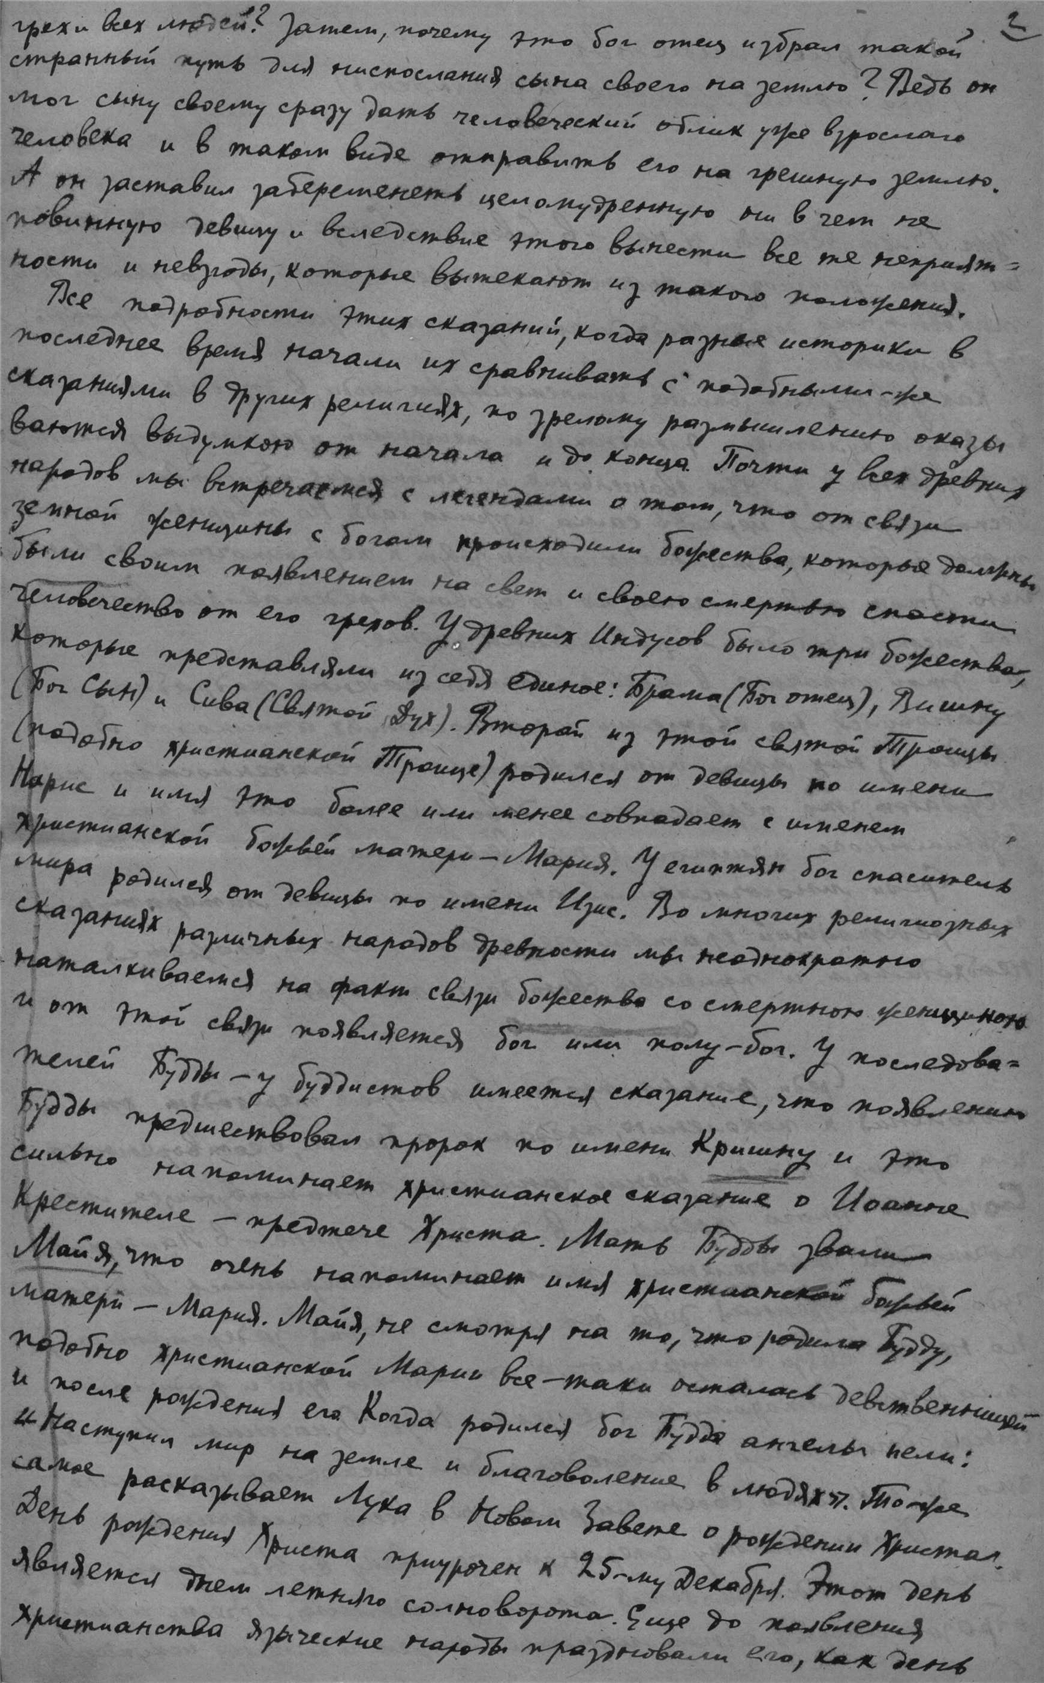 2
грехи всех людей? Затем, почему это бог отец избрал такой
странный путь для ниспослания сына своего на землю? Ведь он
мог сыну своему сразу дать человеческий облик уже взрослаго
человека и в таком виде отправить его на грешную землю.
А он заставил забеременеть целомудренную ни в чем не
повинную девицу и вследствие этого вынести все те неприят=
ности и невзгоды, которые вытекают из такого положения.
Все подробности этих сказаний, когда разные историки в
последнее время начали их сравнивать с подобными-же
сказаниями в других религиях, по зрелому размышлению оказы
ваются выдумкою от начала и до конца. Почти у всех древних
народов мы встречаемся с легендами о том, что от связи
земной женщины с богом происходили божества, которые должны
были своим появлением на свет и своею смертью спасти
человечество от его грехов. У древних Индусов было три божества,
которые представляли из себя единое: Брама (Бог отец), Вишну
(Бог Сын) и Сива (Святой Дух). Второй из этой святой Троицы
(подобно христианской Троице) родился от девицы по имени
Нарис и имя это более или менее совпадает с именем
христианской божьей матери - Мария. У египтян бог спаситель
мира родился от девицы по имени Изис. Во многих религиозных
сказаниях различных народов древности мы неоднократно
наталкиваемся на факт связи божества со смертною женщиною
и от этой связи появляется бог или полу-бог. У последова=
телей Будды - у буддистов имеется сказание, что появлению
Будды предшествовал пророк по имени Кришну и это
сильно напоминает христианское сказание о Иоанне
Крестителе - предтече Христа. Мать Будды звали
Майя, что очень напоминает имя христианской божьей
матери - Мария. Майя, не смотря на то, что родила Будду,
подобно христианской Марии все-таки осталась девственницей
и после рождения его. Когда родился бог Будда ангелы пели:
„Наступил мир на земле и благоволение в людях". То-же
самое расказывает Лука в Новом Завете о рождении Христа.
День рождения Христа приурочен к 25-му Декабря. Этот день
является днем летняго солноворота. Еще до появления
христианства языческие народы праздновали его, как день